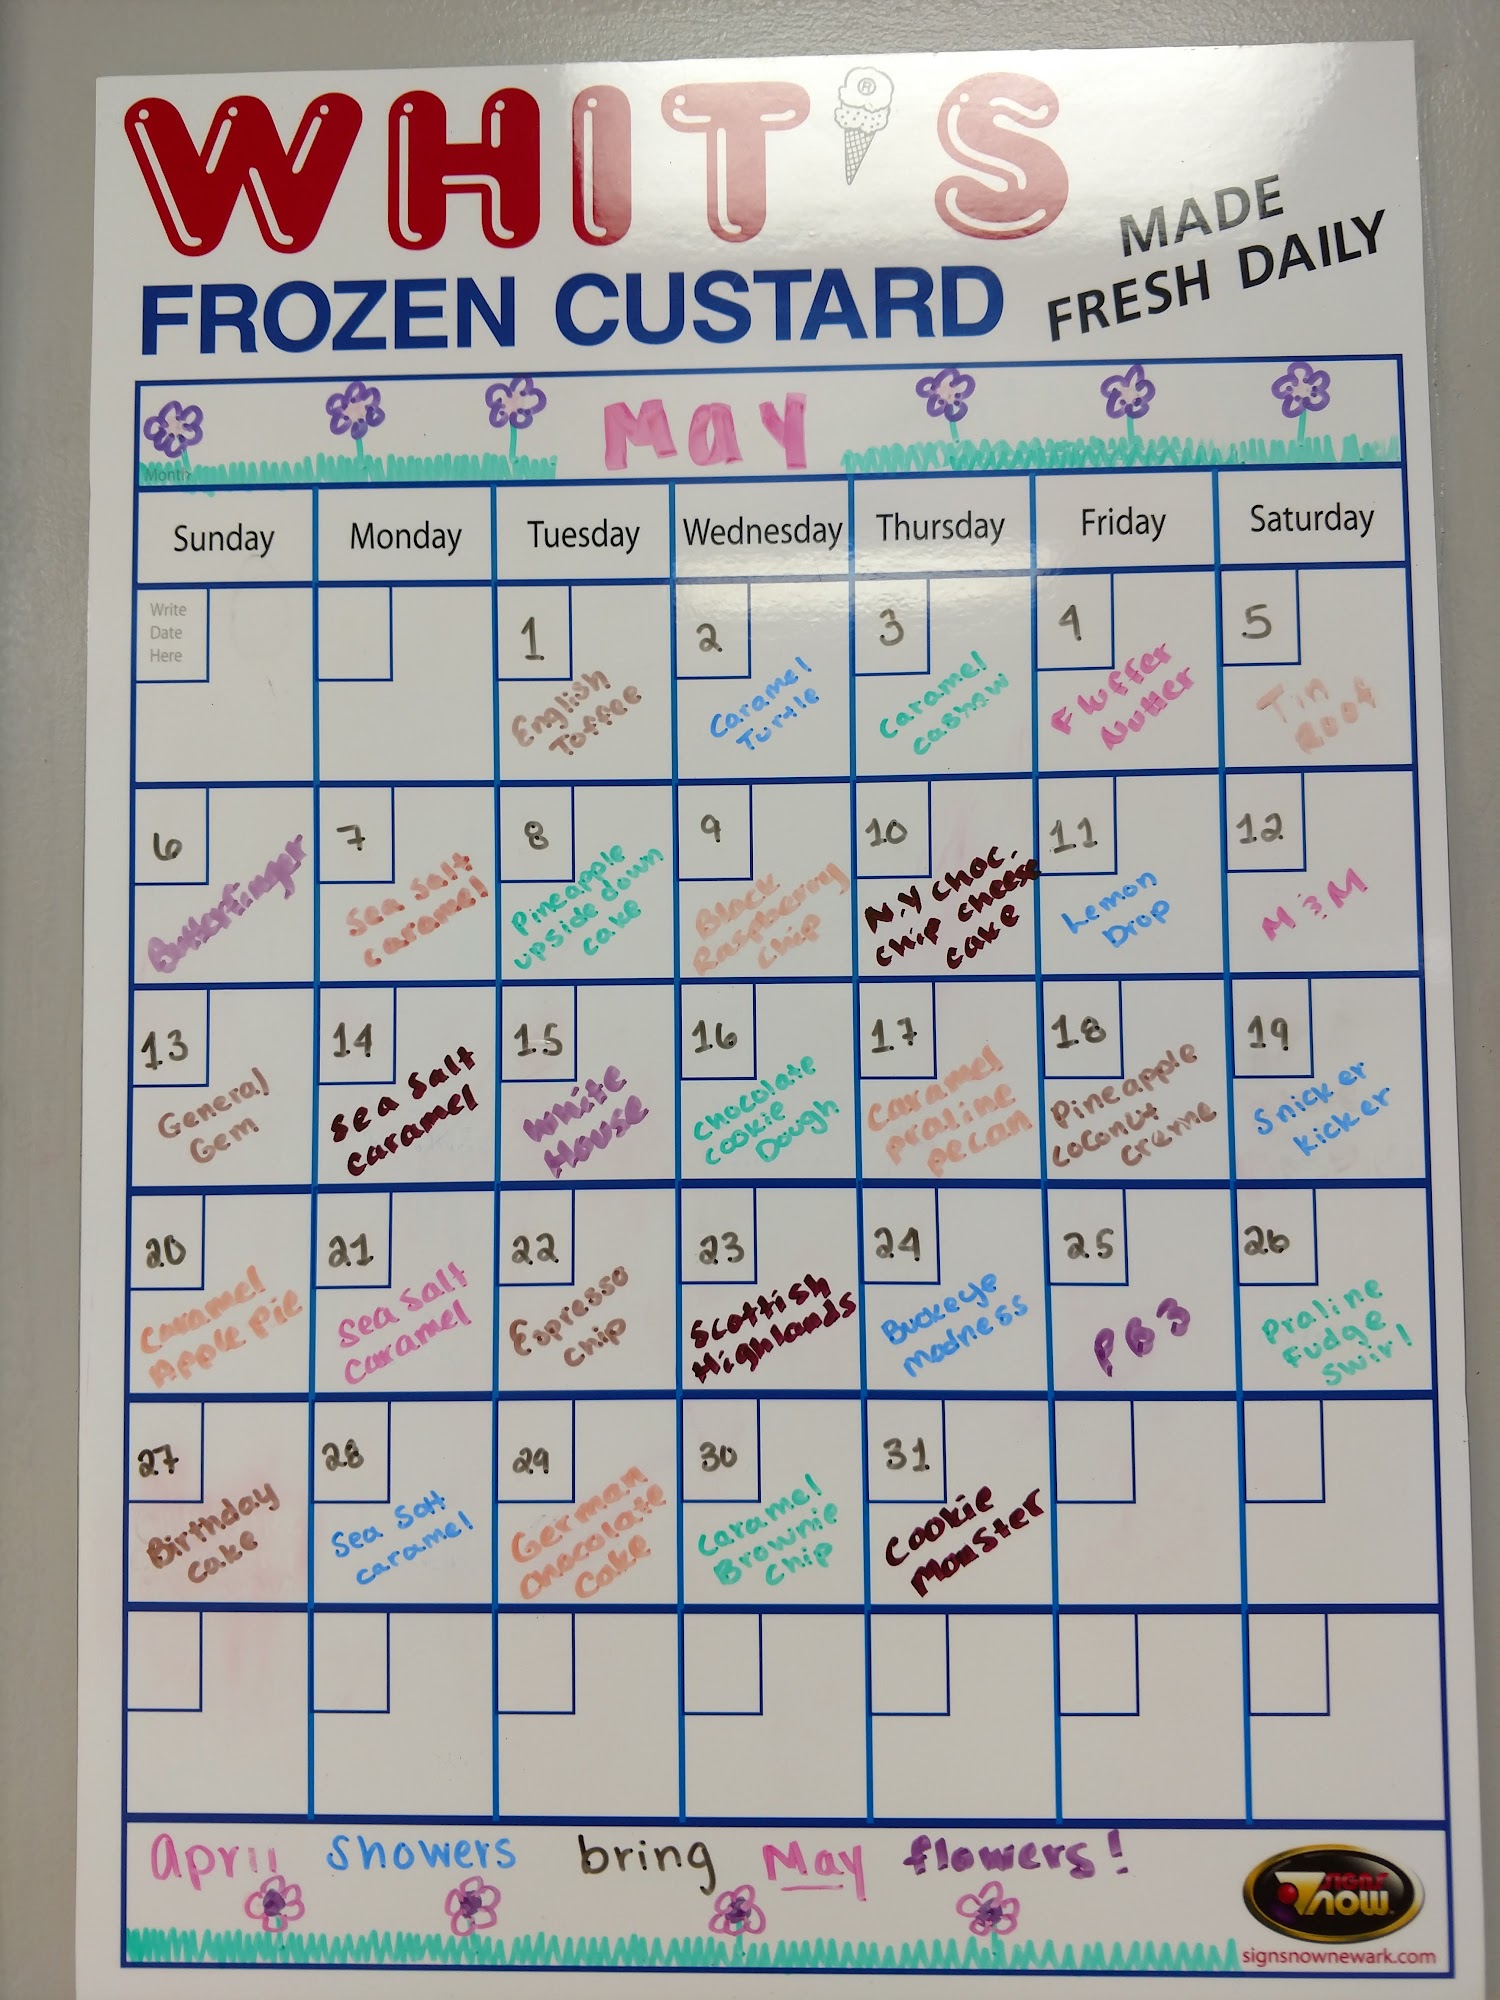 WHIT'S
®
MADE
FRESH DAILY
FROZEN CUSTARD
May
Month
Sunday Monday Tuesday Wednesday Thursday Friday Saturday
Write
Date
Here
1
English
Toffee
2
Caramel
Turtle
3
Caramel
cashow
4
Fluffer
Nutter
5
Tin
Roof
6
Butterfinger
7
Sea Salt
caramel
8
Pineapple
upside down
cake
9
Black
Raspberry
Chip
10
N.Y choc.
chip cheese
cake
11
Lemon
Drop
12
M & M
13
General
Gem
14
Sea Salt
caramel
15
White
House
16
chocolate
cookie
Dough
17
caramel
praline
pecan
18
Pineapple
coconut
creme
19
Snicker
kicker
20
caramel
Apple Pie
21
Sea Salt
caramel
22
Espresso
chip
23
Scottish
Highlands
24
Buckeye
madness
25
PB3
26
Praline
Fudge
Swirl
27
Birthday
Cake
28
Sea Salt
caramel
29
German
chocolate
Cake
30
Caramel
Brownie
chip
31
Cookie
Monster
April showers bring May flowers!
SIGNS
NOW
signsnownewark.com